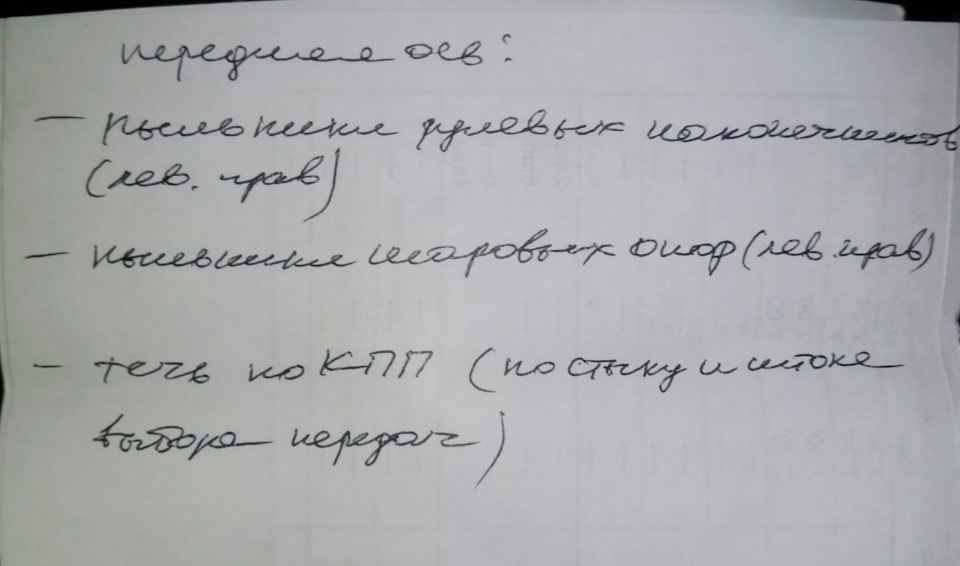 передняя ось:
— пыльники рулевых наконечников
(лев. прав)
— пыльники шаровых опор (лев. прав)
- течь по КПП (по стыку и штоке
выбора передач)